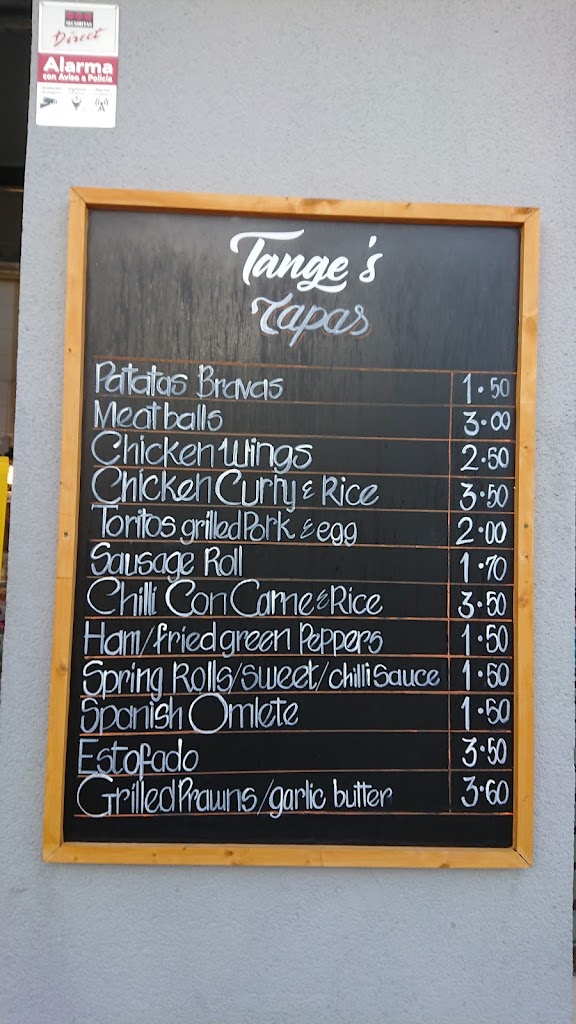 Direct
Alarma
con Aviso a Policía
Tange's
Tapas
Patatas Bravas 1.50
Meatballs 3.00
Chicken Wings 2.50
Chicken Curry & Rice 3.50
Toritos grilled Pork & egg 2.00
Sausage Roll 1.70
Chilli Con Carne & Rice 3.50
Ham/fried green Peppers 1.50
Spring Rolls/sweet/chilli Sauce 1.50
Spanish Omlete 1.50
Estofado 3.50
Grilled Prawns/garlic butter 3.60